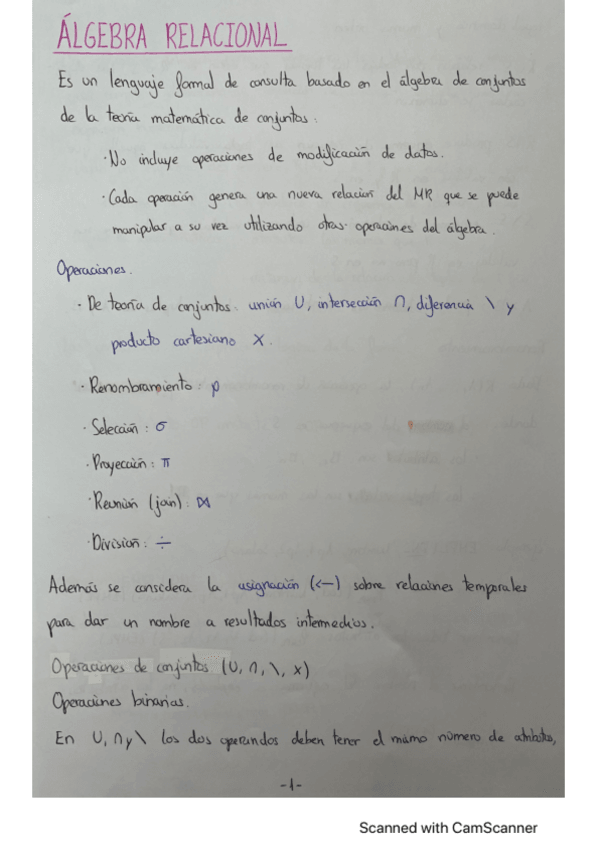 ÁLGEBRA RELACIONAL
Es un lenguaje formal de consulta basado en el álgebra de conjuntos
de la teoría matemática de conjuntos:
· No incluye operaciones de modificación de datos.
· Cada operación genera una nueva relación del MR que se puede
manipular a su vez utilizando otras operaciones del álgebra.
Operaciones.
· De teoría de conjuntos: unión ∪, intersección ∩, diferencia \ y
producto cartesiano X.
· Renombramiento: ρ
· Selección: σ
· Proyección: π
· Reunión (join): ⋈
· División: ÷
Además se considera la asignación (<—) sobre relaciones temporales
para dar un nombre a resultados intermedios.
Operaciones de conjuntos (∪, ∩, \, x)
Operaciones binarias.
En ∪, ∩ y \ los dos operandos deben tener el mismo número de atributos,
-1-
Scanned with CamScanner